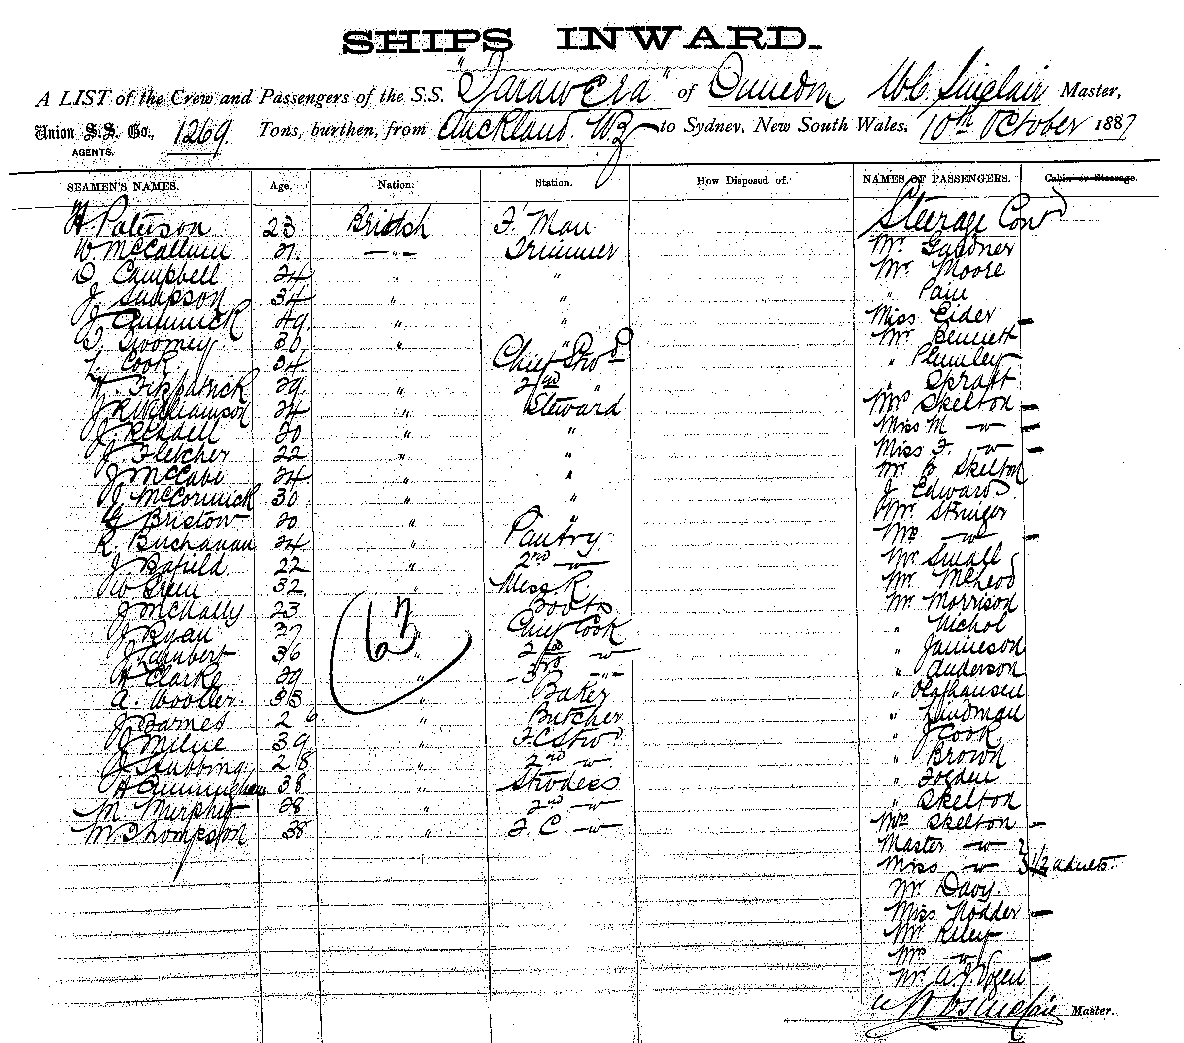 SHIPS INWARD.
A LIST of the Crew and Passengers of the S.S. "Tarawera" of Dunedin W.C. Sinclair Master,
Union S.S. Co., 1269 Tons, burthen, from Auckland. NZ to Sydney, New South Wales, 10th October 1887
AGENTS.
SEAMEN'S NAMES. Age. Nation. Station. How Disposed of. NAMES OF PASSENGERS. Cabin or Steerage.
H Paterson 23 British F. Man Steerage Cont'd
W. McCallum 21. " Trimmer Mr. Gardner
D. Campbell 24 " " Mr. Moore
J. Simpson 34 " " " Pain
J. 49 " " Miss Eider
D. Twomey 30 " " Mr. Bennett
L. Cook 34 Chief Stwd " Plumley
W. Fitzpatrick 29 " 2nd " " Spratt
J. R. Williamson 24 " Steward Mrs Skelton
J. Kendell 20 " " Miss M "
J. Fletcher 22 " " Miss F. "
J. McCabe 24 " " Mr. B Skelton
J. McCormick 30 " " J Edwards
G. Bristow 20 " " Mr. Stringer
R. Buchanan 24 " Pantry Mrs "
J. Bafield 22 " 2nd " Mr Small
W Green 32 " Mess R. Mr. McLeod
J McNally 23 " Boots Mr. Morrison
J. Ryan 37 " Chief Cook " Nichol
J Lambert 36 " 2nd " " Jamieson
H Clarke 29 " 3rd " " Anderson
A. Wooller 33 " Baker " Olafhausen
J Barnes 26 " Butcher " Hindman
J Milne 39 " F C Stwd " J Cook
J Stubbing 28 " 2nd " " Brown
A Cunningham 38 " Strdess " Fogden
M Murphy 28 " 2nd " " Skelton
M Thompson 38 " F. C " Mrs Skelton
63
Master "
Miss " 1/2 adults
Mr. Davy.
Miss Hodder
Mr Riley
Mrs "
Mr. A. J. Vogen
W C Sinclair Master.